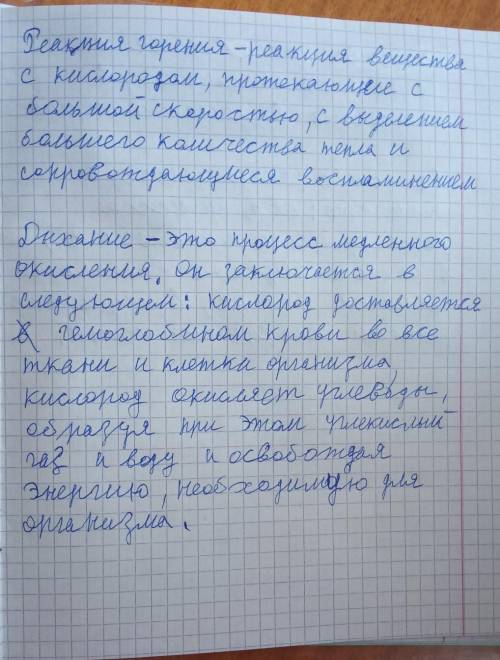 Реакция горения – реакция вещества
с кислородом, протекающие с
большой скоростью, с выделением
большего количества тепла и
сопровождающиеся воспламинением
Дыхание – это процесс медленного
окисления. Он заключается в
следующем: кислород доставляется
гемоглобином крови во все
ткани и клетки организма,
кислород окисляет углеводы,
образуя при этом углекислый
газ и воду и освобождая
энергию, необходимую для
организма.